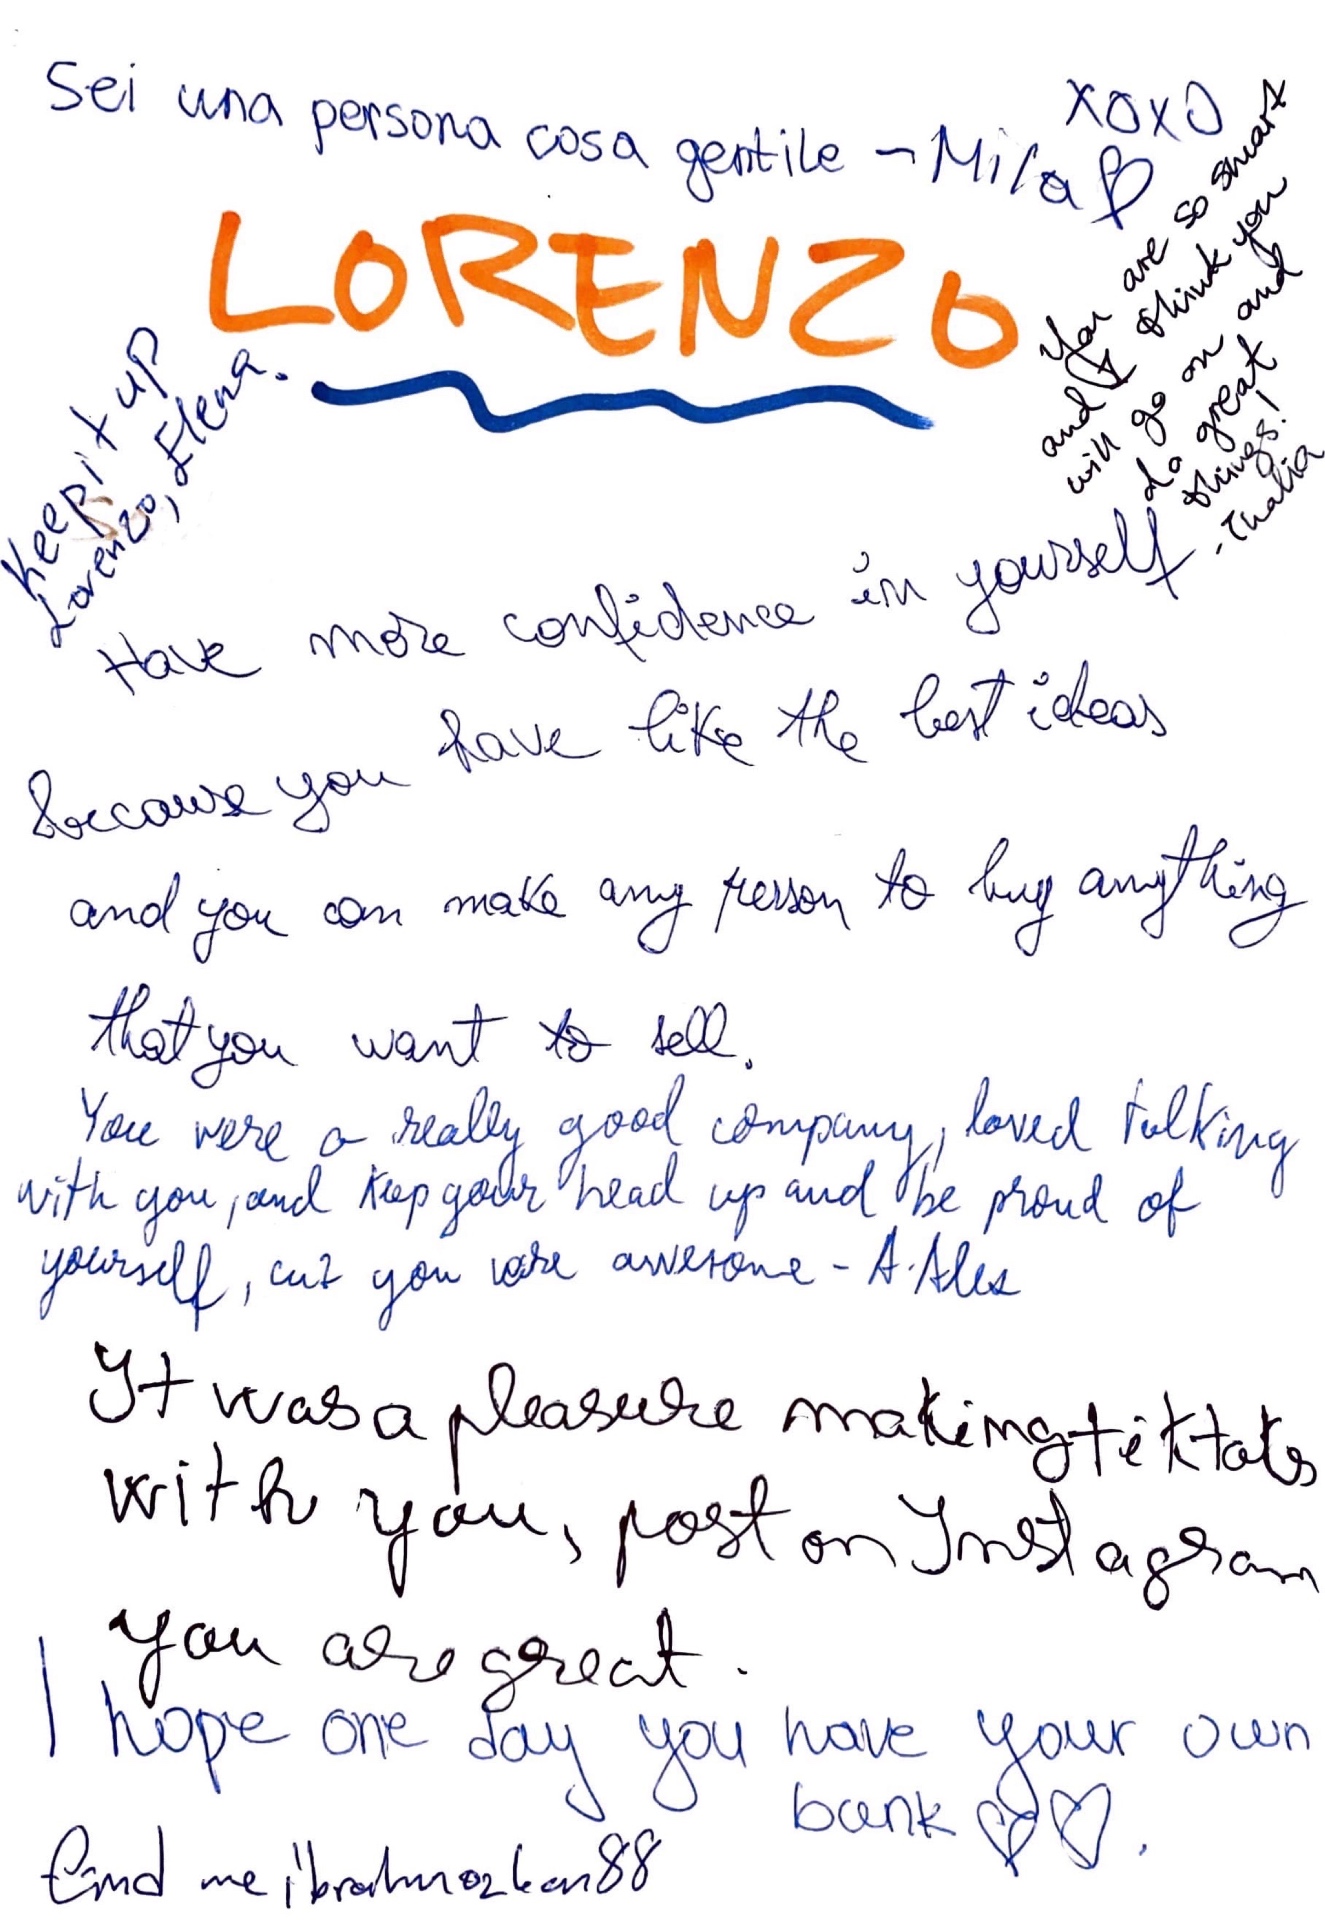 Sei una persona cosa gentile - Mila
XOXO
LORENZO
You are so smart
and I think you
will go on and
do great
things!
- Thalia
Keep it up
Lorenzo, Elena.
Have more confidence in yourself
because you have like the best ideas
and you can make any person to buy anything
that you want to sell.
You were a really good company, loved talking
with you, and keep your head up and be proud of
yourself, cuz you are awesome - A. Alex
It was a pleasure making tiktoks
with you, post on Instagram
you are great.
I hope one day you have your own
bank
me